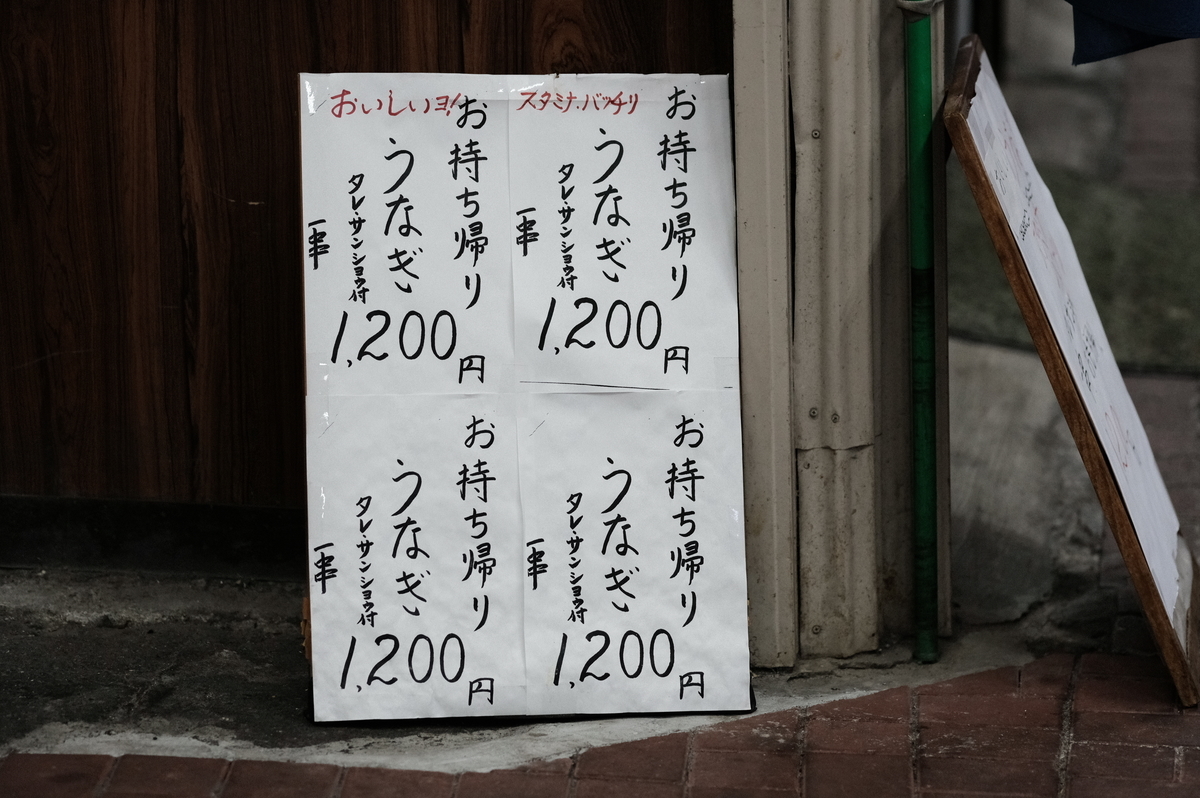 スタミナ.バッチリ
お持ち帰り
うなぎ
タレ・サンショウ付
一串
1,200円
おいしいヨ!
お持ち帰り
うなぎ
タレ・サンショウ付
一串
1,200円
お持ち帰り
うなぎ
タレ・サンショウ付
一串
1,200円
お持ち帰り
うなぎ
タレ・サンショウ付
一串
1,200円